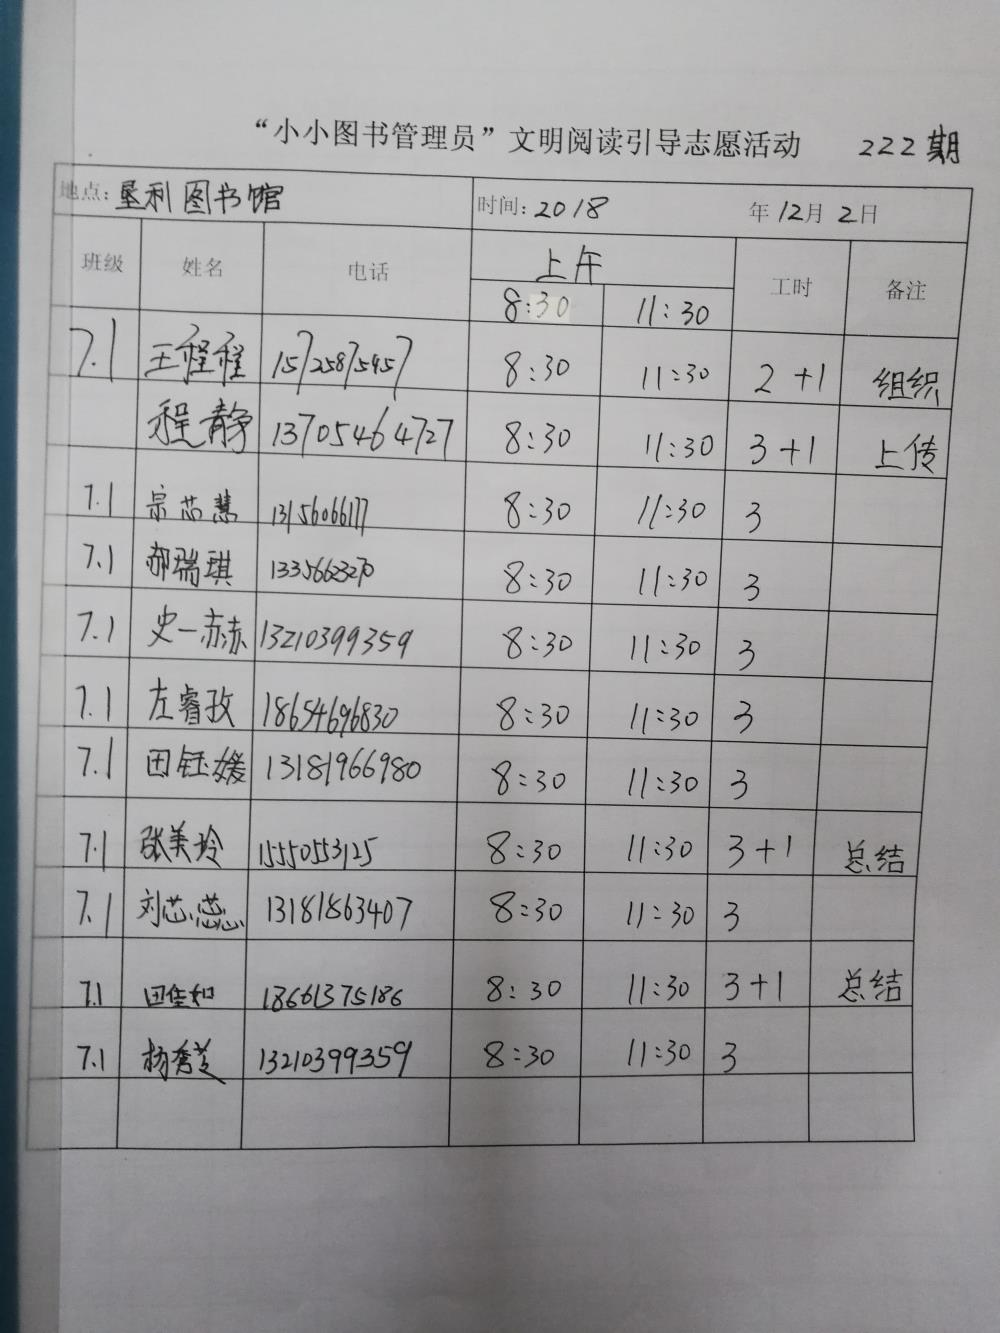 “小小图书管理员”文明阅读引导志愿活动 222期
地点：垦利图书馆 时间：2018 年12月2日
班级 姓名 电话 上午 工时 备注
8:30 11:30
7.1 王程程 15725875457 8:30 11:30 2+1 组织
程静 13705464727 8:30 11:30 3+1 上传
7.1 宗芯慧 13156066177 8:30 11:30 3
7.1 郝瑞琪 13356623270 8:30 11:30 3
7.1 史一赫 13210399359 8:30 11:30 3
7.1 左睿孜 18654696830 8:30 11:30 3
7.1 田钰媛 13181966980 8:30 11:30 3
7.1 张美玲 15550553125 8:30 11:30 3+1 总结
7.1 刘芯蕊 13181863407 8:30 11:30 3
7.1 田佳如 18661375186 8:30 11:30 3+1 总结
7.1 杨秀芝 13210399359 8:30 11:30 3